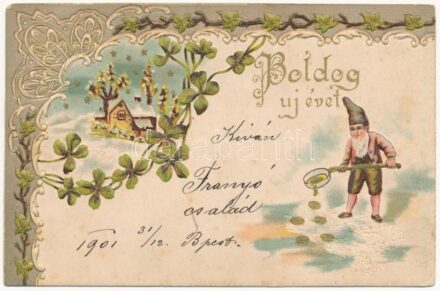 Boldog
uj évet
Kiván
Franyó
család
1901 31/12. Bpest.